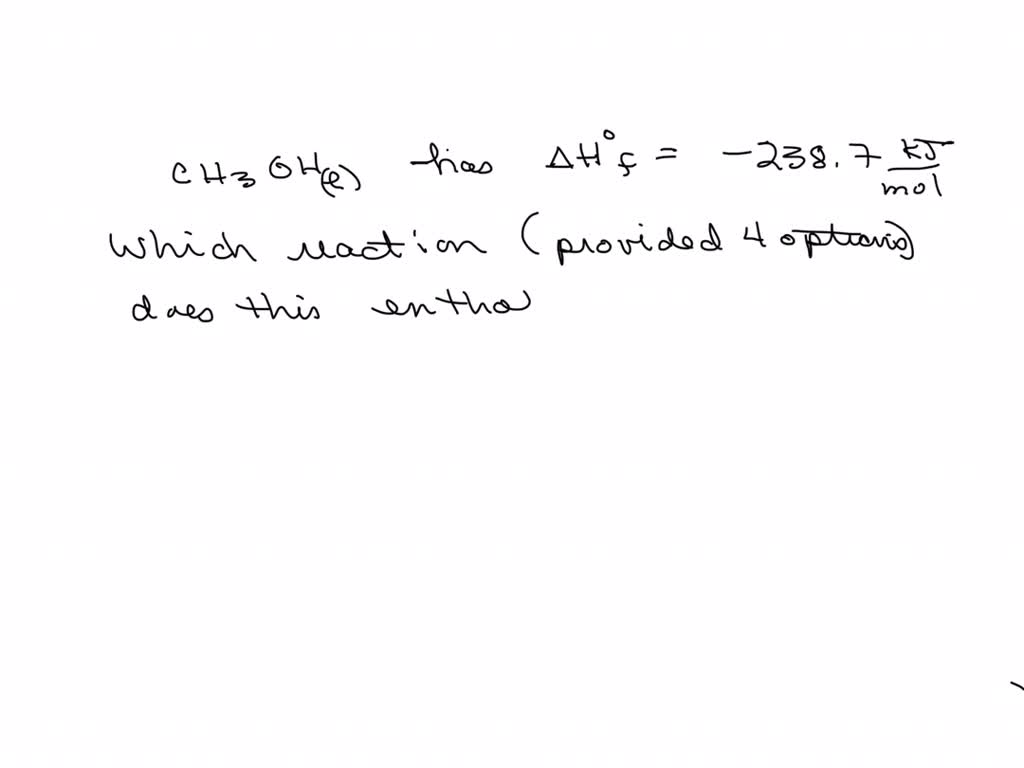 CH3OH(l) has ΔH°f = -238.7 kJ/mol
which reaction (provided 4 options)
does this entha